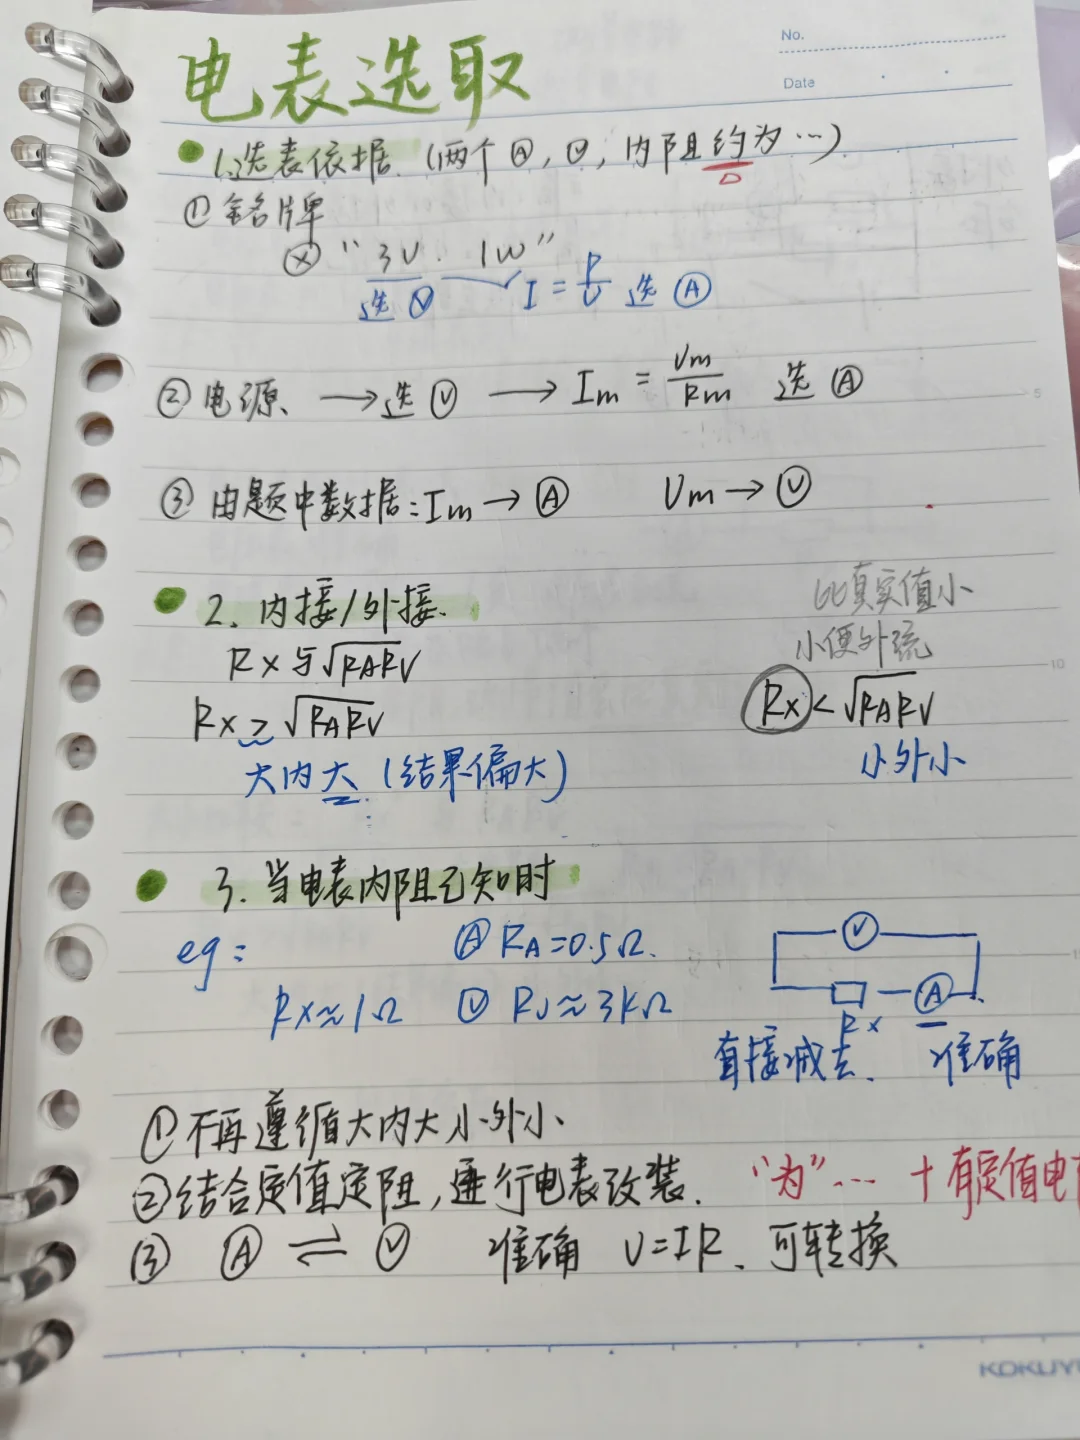 No.
Date
电表选取
1.选表依据.(两个Ⓐ,Ⓥ,内阻约为…)
①铭牌
ⓧ “3V. 1W”
选Ⓥ I=P/U 选Ⓐ
②电源、→选Ⓥ → Im=Um/Rm 选Ⓐ
5
③由题中数据:Im→Ⓐ Um→Ⓥ
2.内接/外接.
比真实值小
Rx与√RARV
小便外流
10
Rx≥√RARV
Rx<√RARV
大内大(结果偏大)
小外小
3.当电表内阻已知时
eg:
Ⓐ RA=0.5Ω.
Ⓥ
Rx≈1Ω Ⓥ RV≈3kΩ
Ⓐ
Rx
直接减去. 准确
①不再遵循大内大小外小.
②结合定值定阻,进行电表改装. “为”… +有定值电
③ Ⓐ⇌Ⓥ 准确 U=IR、可转换
KOKUY